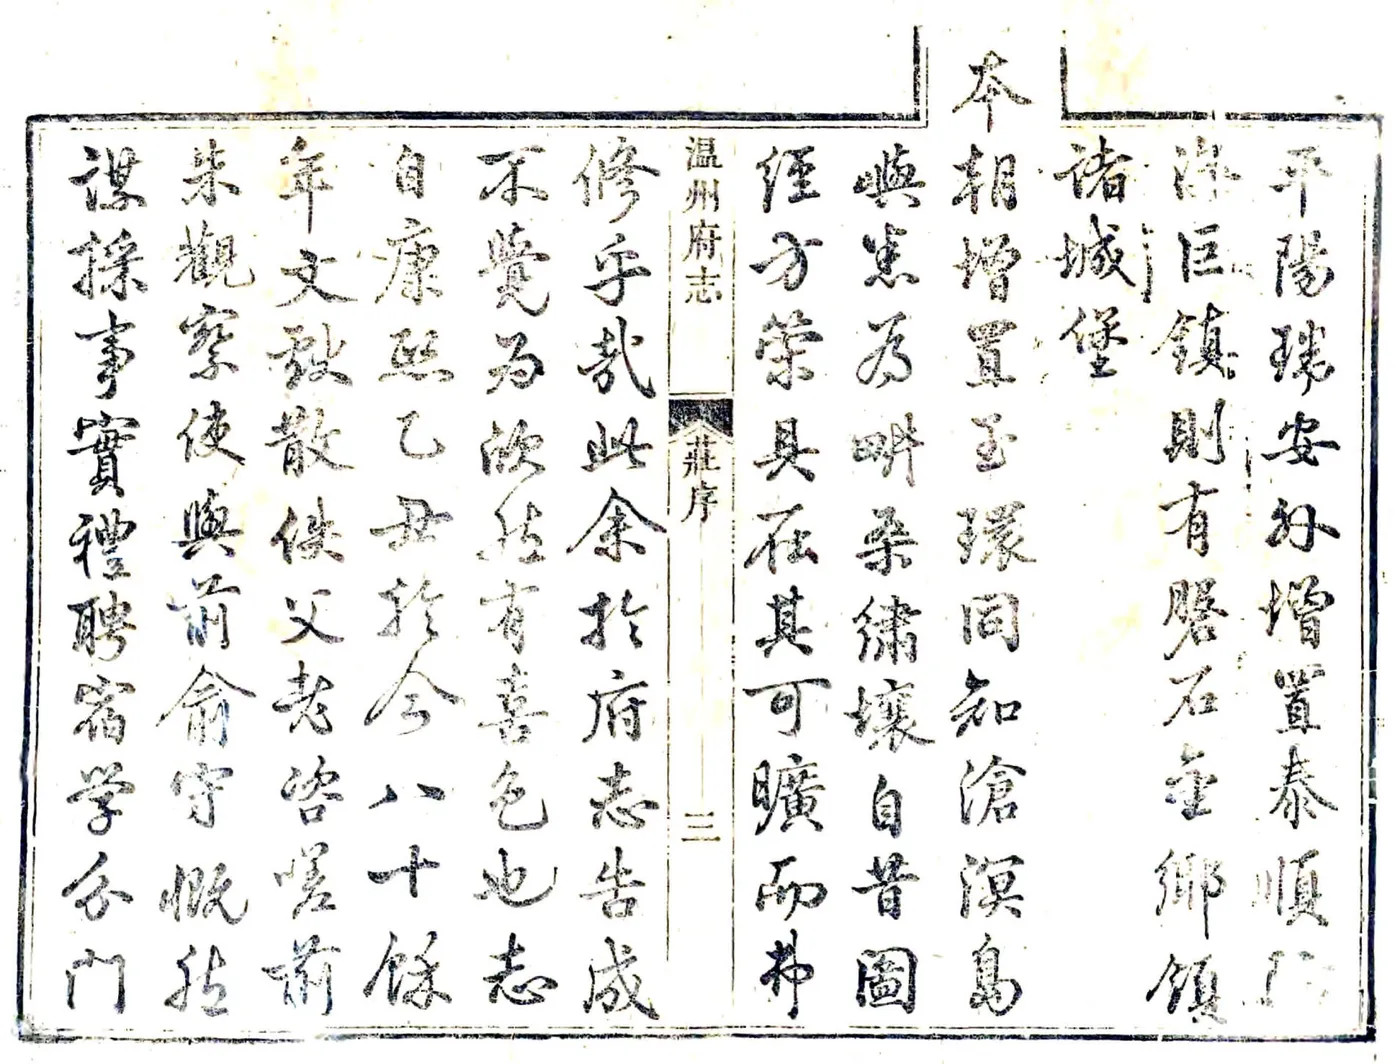 平陽瑞安外增置泰順
海巨鎮則有磐石金鄉鎮
諸城堡
本朝增置玉環同知滄溟島
嶼悉為畊桑繡壤自昔圖
經方策具在其可曠而弗
温州府志
莊序
三
修乎哉此余於府志告成
不覺為欣然有喜色也志
自康熙乙丑於今八十餘
年文獻散佚父老咨嗟前
朱觀察使與前俞守慨然
謀採事實禮聘宿學分門